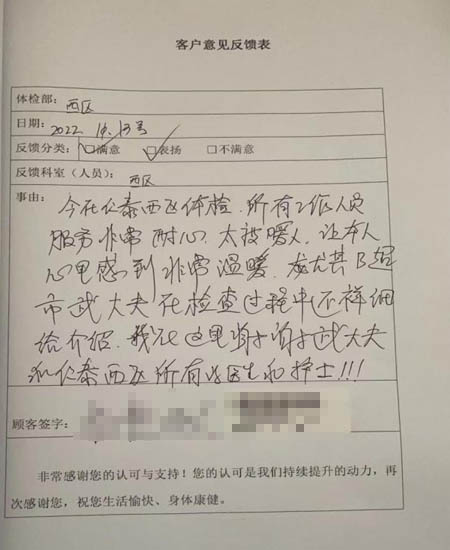 客户意见反馈表
体检部：西区
日期：2022.10.13号
反馈分类：☑满意 ☑表扬 □不满意
反馈科室（人员）：西区
事由：今在仁泰西区体检.所有工作人员
服务非常耐心.太被暖人.让本人
心里感到非常温暖.尤其B超
市武大夫在检查过程中还祥细
给介绍.我在这里谢谢武大夫
和仁泰西区所有的医生和护士!!!
顾客签字：
非常感谢您的认可与支持！您的认可是我们持续提升的动力，再
次感谢您，祝您生活愉快、身体康健。